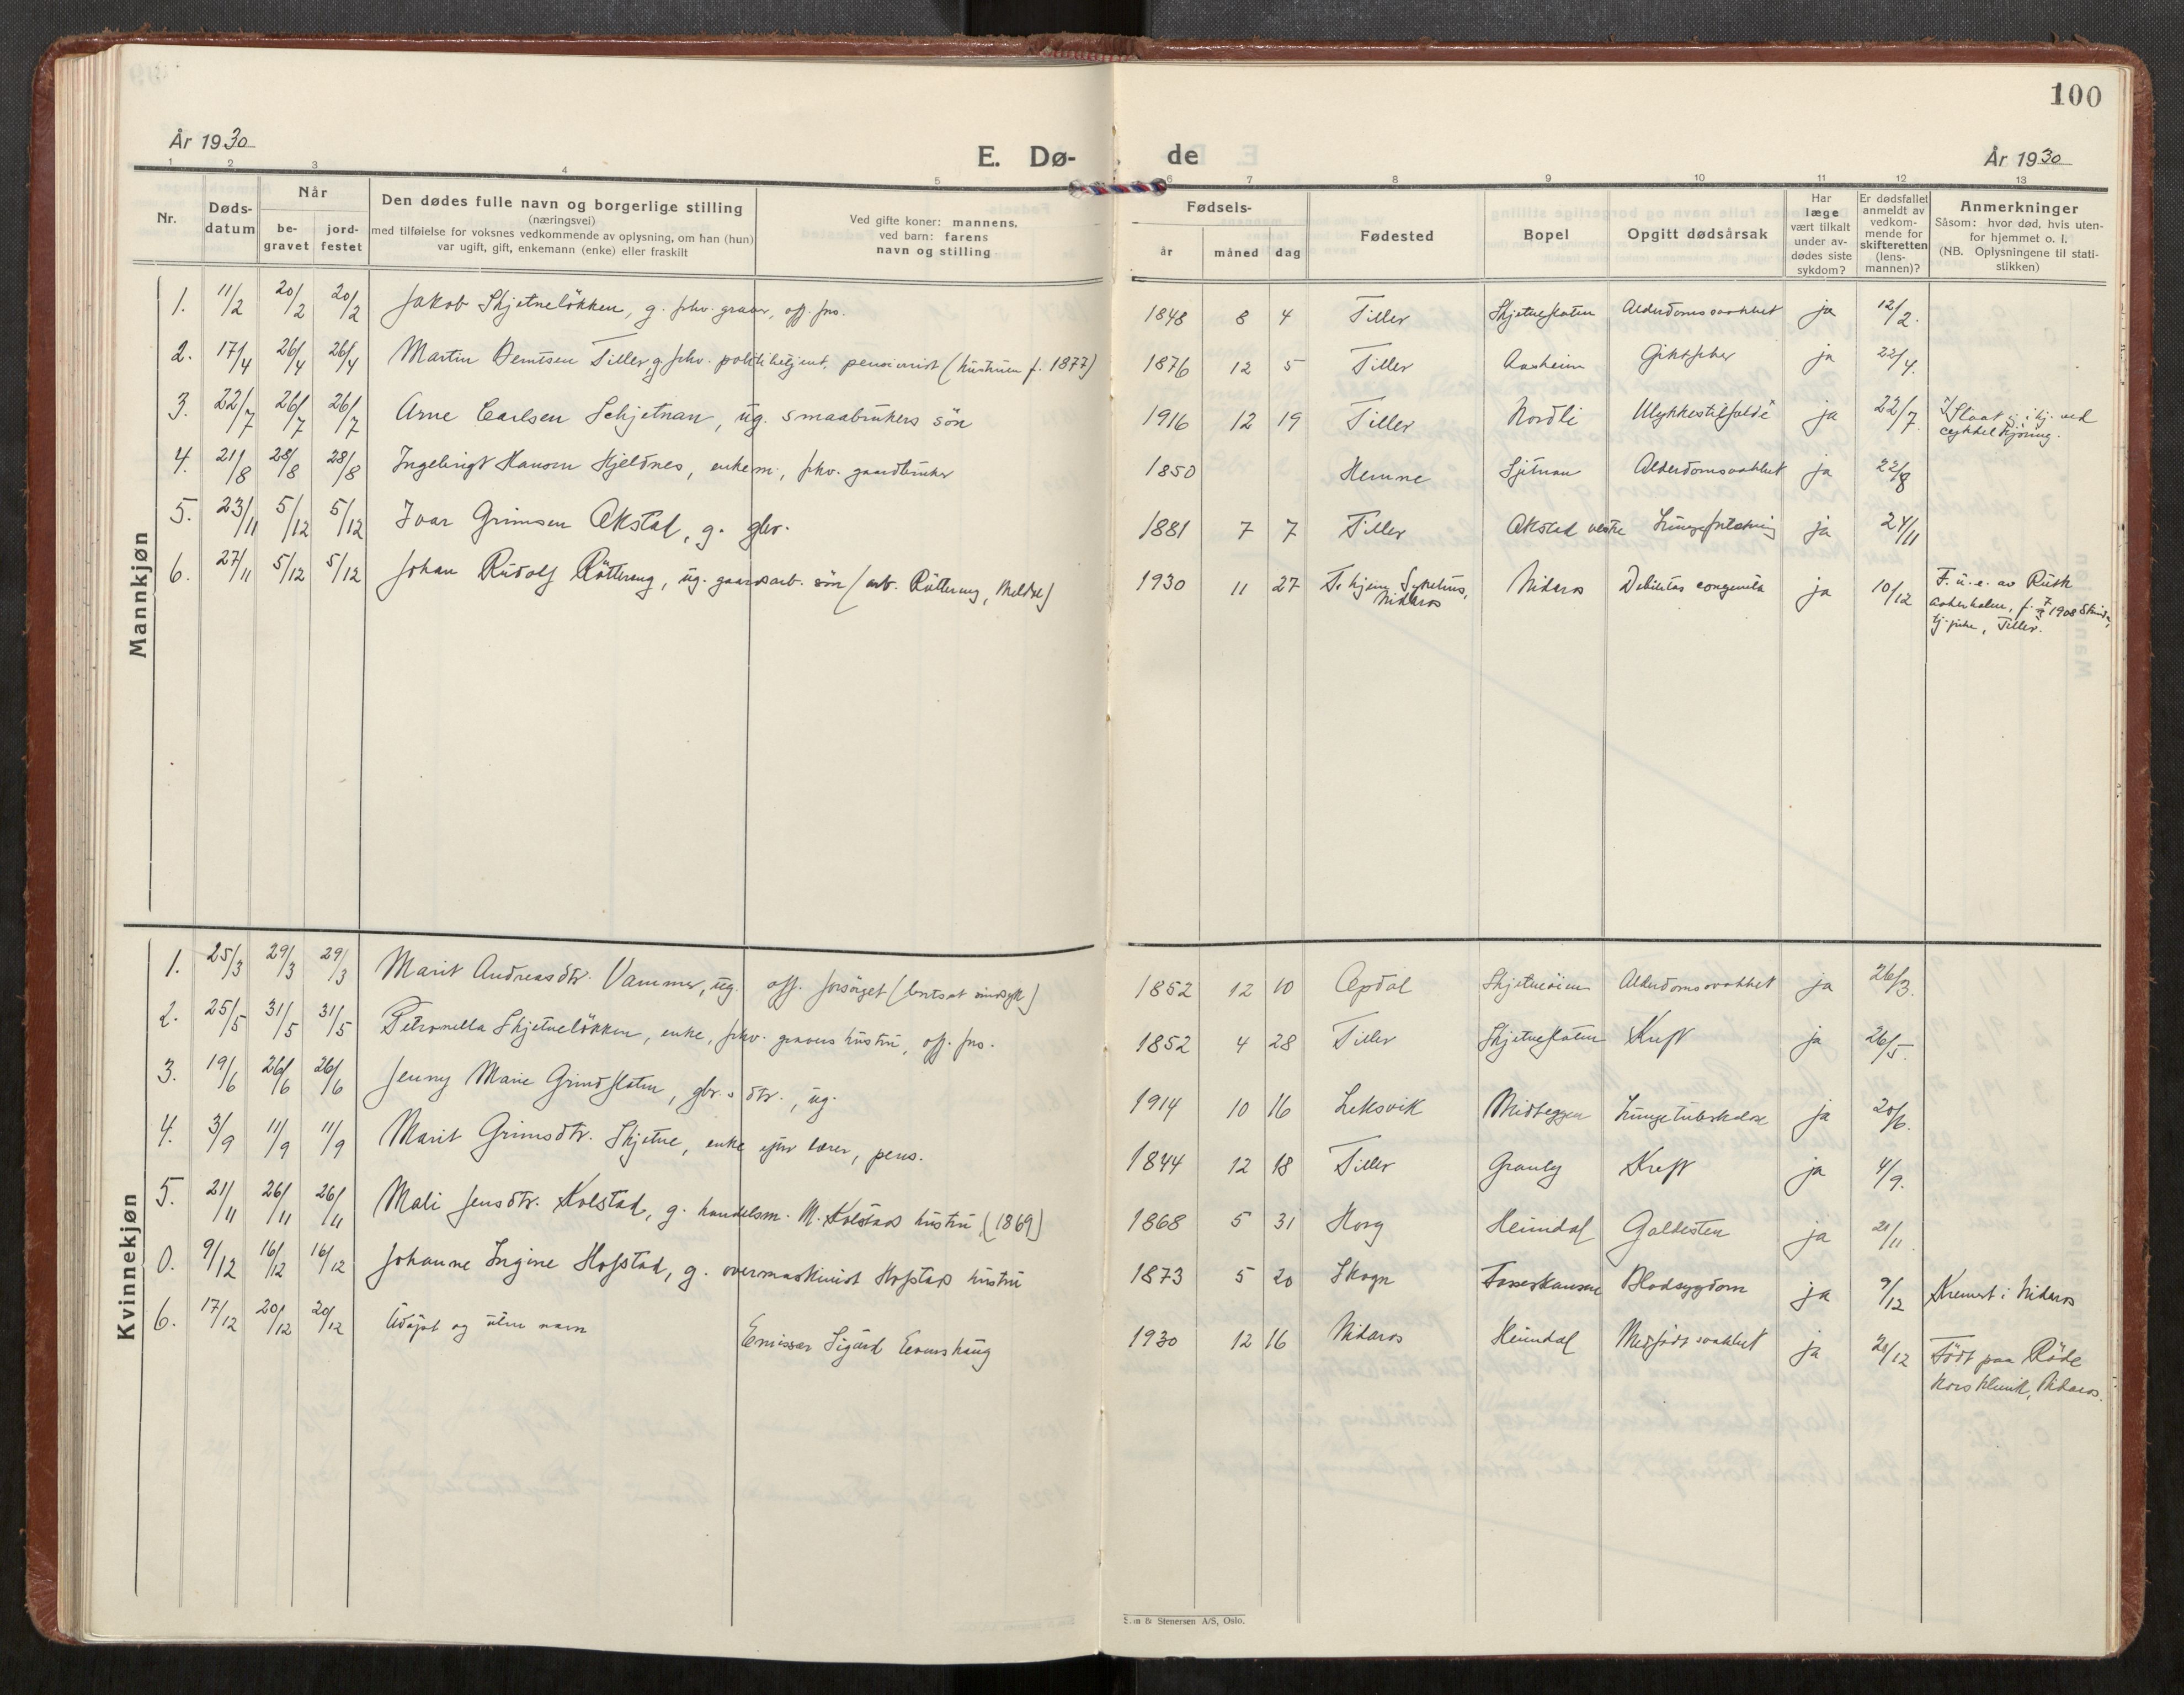 100
År 1930
E. Dø-
de
År 1930
1 2 3 4 5 6 7 8 9 10 11 12 13
Nr.
Døds-
datum
Når
be-
gravet
jord-
festet
Den dødes fulle navn og borgerlige stilling
(næringsvei)
med tilføielse for voksnes vedkommende av oplysning, om han (hun)
var ugift, gift, enkemann (enke) eller fraskilt
Ved gifte koner: mannens,
ved barn: farens
navn og stilling
Fødsels-
år måned dag
Fødested
Bopel
Opgitt dødsårsak
Har
læge
vært tilkalt
under av-
dødes siste
sykdom?
Er dødsfallet
anmeldt av
vedkom-
mende for
skifteretten
(lens-
mannen)?
Anmerkninger
Såsom: hvor død, hvis uten-
for hjemmet o. l.
(NB. Oplysningene til stati-
stikken)
Mannkjøn
1. 11/2 20/2 20/2 Jakob Skjetneløkken, g. fhv. graver, off. frs. 1848 8 4 Tiller Skjetneflaten Alderdomssvakhet ja 12/2.
2. 17/4 26/4 26/4 Martin Berntsen Tiller, g. fhv. politibetjent, pensionist (hustruen f. 1877) 1876 12 5 Tiller Aasheim Giktfeber ja 22/4.
3. 22/7 26/7 26/7 Arne Carlsen Schjetnan, ug. smaabrukers søn 1916 12 19 Tiller Nordli Ulykkestilfælde ja 22/7. Slaat i hj. ved
cykkelkjøring.
4. 21/8 28/8 28/8 Ingebrigt Hansen Kjeldnes, enkem., fhv. gaardbruker 1850 Hemne Sjetnan Alderdomssvakhet ja 22/8
5. 23/11 5/12 5/12 Ivar Grimsen Okstad, g. gbr. 1881 7 7 Tiller Okstad vestre ja 24/11
6. 27/11 5/12 5/12 Johan Rudolf Røttereng, ug. gaardsarb. søn (arb. Røttereng, Meldal) 1930 11 27 Tr.hjem Sykehus,
Nidaros Nidaros Debilitas congenita ja 10/12 F. u. e. av Ruth
f. 1908
tj. pike, Tiller.
Kvinnekjøn
1. 25/3 29/3 29/3 Marit Andreasdtr. Vammer, ug. off. forsørget (bortsat sindssyk) 1852 12 10 Opdal Skjetneøien Alderdomssvakhet ja 26/3.
2. 25/5 31/5 31/5 Petronella Skjetneløkken, enke, fhv. gravers hustru, off. frs. 1852 4 28 Tiller Skjetneflaten Kreft ja 26/5.
3. 19/6 26/6 26/6 Jenny Marie Grindflaten, gbr.s dtr., ug. 1914 10 16 Leksvik Midteggen Lungetuberkulose ja 20/6.
4. 3/9 11/9 11/9 Marit Grimsdtr. Skjetne, enke efter lærer, pens. 1844 12 18 Tiller Granby Kreft ja 4/9.
5. 21/11 26/11 26/11 Mali Jensdtr. Kolstad, g. handelsm. M. Kolstads hustru (1869) 1868 5 31 Horg Heimdal Galdesten ja 21/11
0. 9/12 16/12 16/12 Johanne Ingine Hofstad, g. overmaskinist Hofstads hustru 1873 5 20 Skogn Blodsygdom ja 9/12 Kremert i Nidaros
6. 17/12 20/12 20/12 Udøpt og uten navn Emissær Sigurd Evenshaug 1930 12 16 Nidaros Heimdal Medfødt svakhet ja 20/12 Født paa Røde
Kors Klinik, Nidaros.
& Stenersen A/S, Oslo.